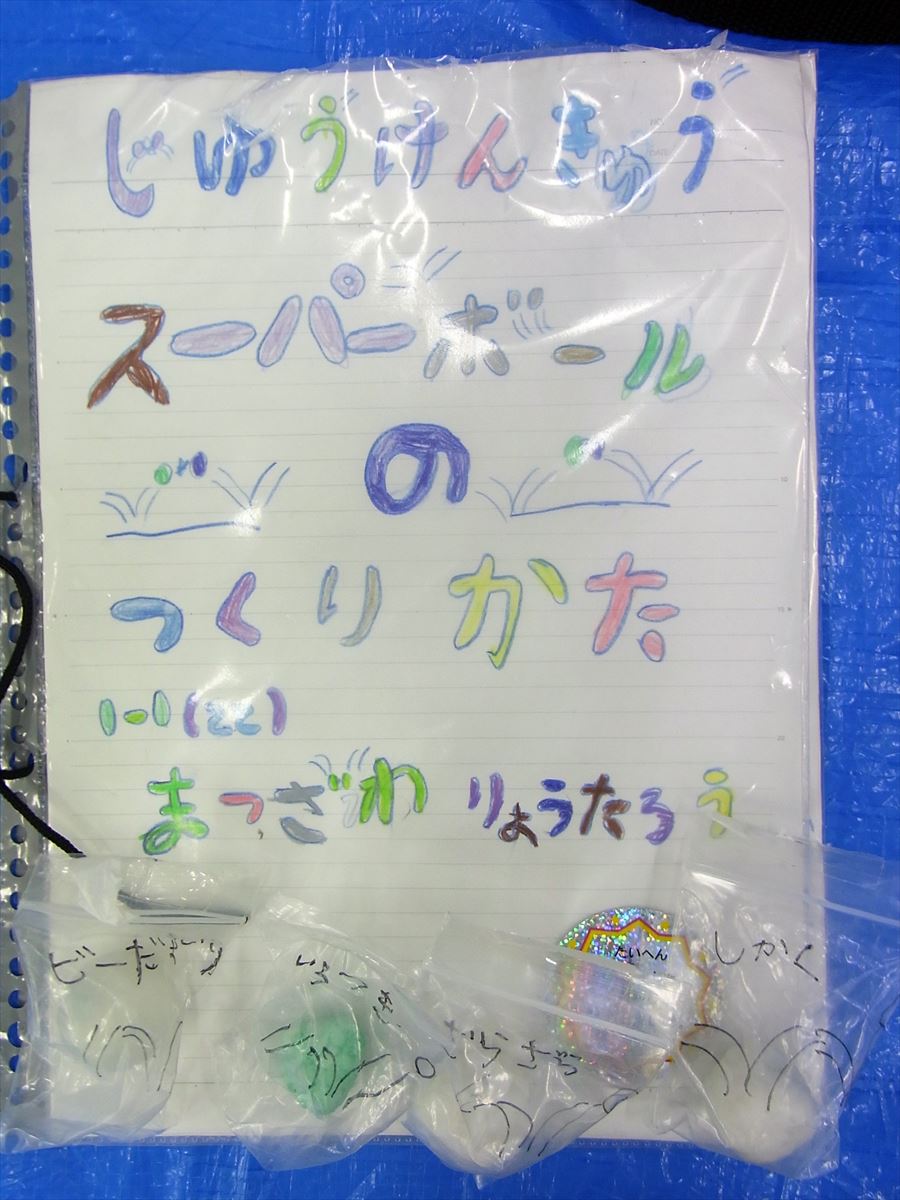 じゆうけんきゅう
スーパーボール
の
つくりかた
1-1(
まつざわ りょうたろう
ビーだま
たいへん
しかく